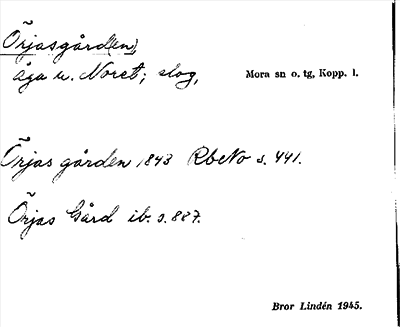 Õrjasgård(en),
äga u. Noret; slog,
Mora sn o. tg, Kopp. l.
Õrjas gården 1843 RbNo s. 441.
Õrjas Gård ib. s. 887.
Bror Lindén 1945.